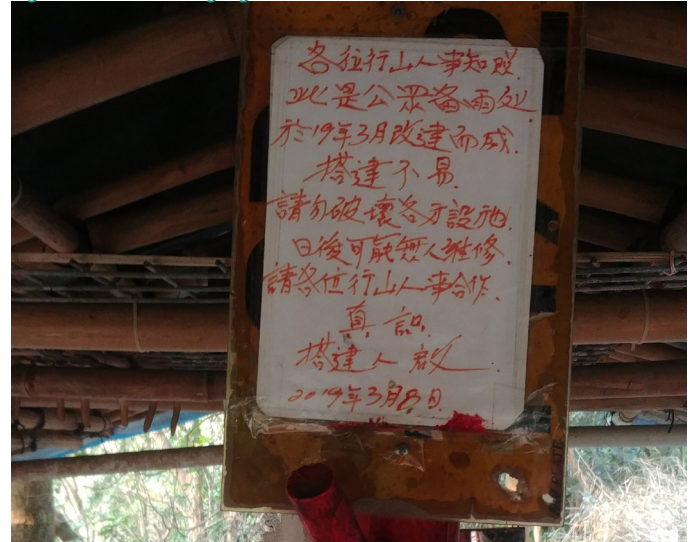 各位行山人事知照
此是公眾避雨处
於19年3月改建而成.
搭建不易.
請勿破壞各方設施.
日後可能無人維修.
請各位行山人事合作.
真誠.
搭建人啟.
2019年3月8日.